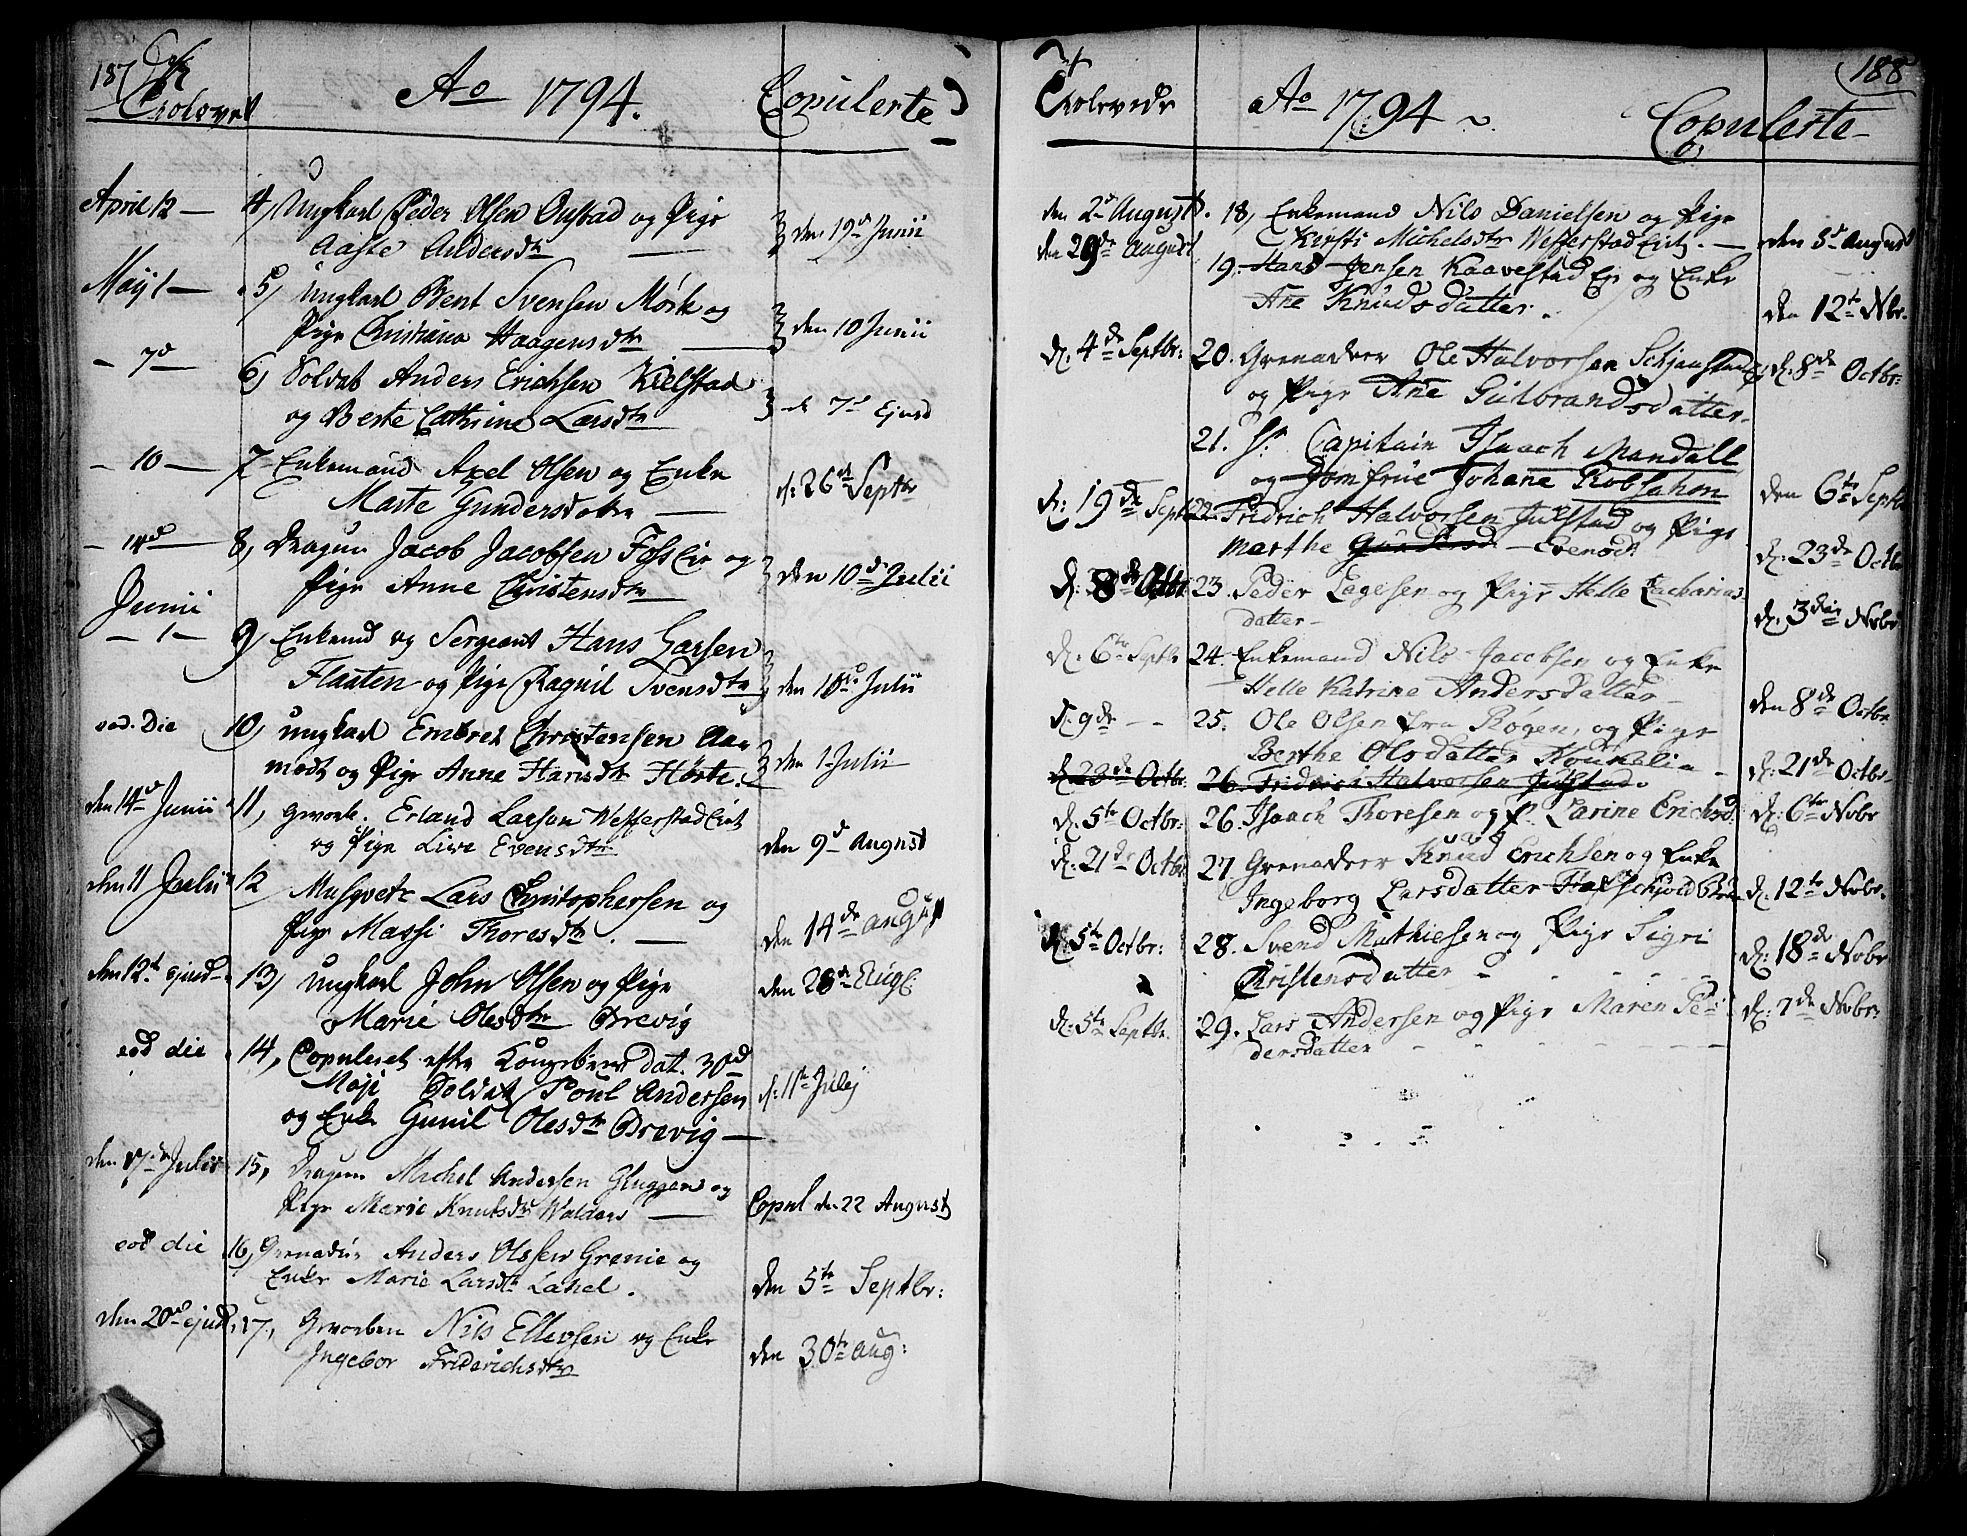 187
Troloved
Ao 1794.
Copulerte
April 12 — 4, Ungkarl Peder Olsen Onstad og Pige
Aaste Andersdtr — den 19d Junii
Maÿ 1 — 5, Ungkarl Bent Svensen Mörk og
Pige Christiana Haagensdtr — den 10 Junii
— 7d — 6, Soldat Anders Erichsen Kielstad
og Berte Cathrine Larsdtr — d 7d Ejusd
— 10 — 7 Enkemand Axel Olsen og Enke
Marte Gundersdotter — d: 26d Septbr
— 14d — 8, Dragun Jacob Jacobsen Foss Eie og
Pige Anne Christensdtr — den 10d Julii
Junii
— 1 — 9, Enkemd og Sergeant Hans Larsen
Flaaten og Pige Ragnil Svensdtr den 10de Julii
eod. die 10, Ungkarl Embret Christensen Aa-
modt og Pige Anne Hansdtr Hörte. den 1 Julii
den 14d Junii 11, gevorb. Erland Larson Wefferstad Eiet
og Pige Live Evensdtr den 9d August
den 11 Julii 12 Musqvete Lars Christophersen og
Pige Massi Thoresdtr. — den 14de August
den 12t ejusd. 13, Ungkarl John Olsen og Pige
Marie Olesdtr Drevig den 28de Aug:
eod die 14, Copuleret efter Kongebrev dat. 30d
Maji Soldat Poul Andersen
og Enke Gunil Olesdtr Drevig — d: 11te Julej
den 17de Julii 15, Dragun Michel Andersen Gluggen og
Pige Marie Knutsdtr Walders — Copul den 22 August
eod die 16, Grenadier Anders Olssen Grenie og
Enke Marie Larsdtr Lahel. den 5te Septbr:
den 20de ejusd. 17, Gevorben Nils Ellevsen og Enke
Ingebor Friderichsdtr den 30te Aug:
188
Trolovede
Ao 1794
Copulerte
den 2d August. 18, Enkemand Nils Danielsen og Pige
Kirsti Michelsdtr Wefferstad Eiet. — den 5d August
den 29de August 19. Hans Jensen Kaavestad Eje og Enke
Ane Knudsdatter. den 12te Nbr.
d. 4de Septbr: 20. Grenadeer Ole Halvorsen Schjønstad
og Pige Ane Gulbrandsdatter. d. 8de Octbr:
21. Hr. Capitain Isaach Mandall
og Jomfrue Johane Robsahm den 6te Septb
d: 19de Sept 22. Fridrich Halvorsen Julstad og Pige
Marthe Gundersd — Evensdt d. 23de Octb
d. 8de Octbr 23. Peder Lagesen og Pige Helle Zacharias
datter — d. 3die Nobr
d. 6te Septbr 24. Enkemand Nils Jacobsen og Enke
Helle Katrine Andersdatter — den 8de Octbr
d. 9de — 25. Ole Olsen fra Røgen, og Pige
Berthe Olsdatter — d. 21de Octbr
d. 23de Octbr. 26. Friderich Halvorsen Julstad.
d. 5te Octbr: 26. Isaach Thoresen og P. Karine Erichsd. d: 6te Nobr
d: 21de Octbr 27. Grenadeer Knud Erichsen og Enke
Ingeborg Larsdatter d. 12te Nobr.
d. 5te Octbr: 28. Svend Mathiesen og Pige Sigri
Christensdatter d: 18de Nobr
d: 5te Septbr. 29. Lars Andersen og Pige Maren Pe-
dersdatter d: 7de Nobr: